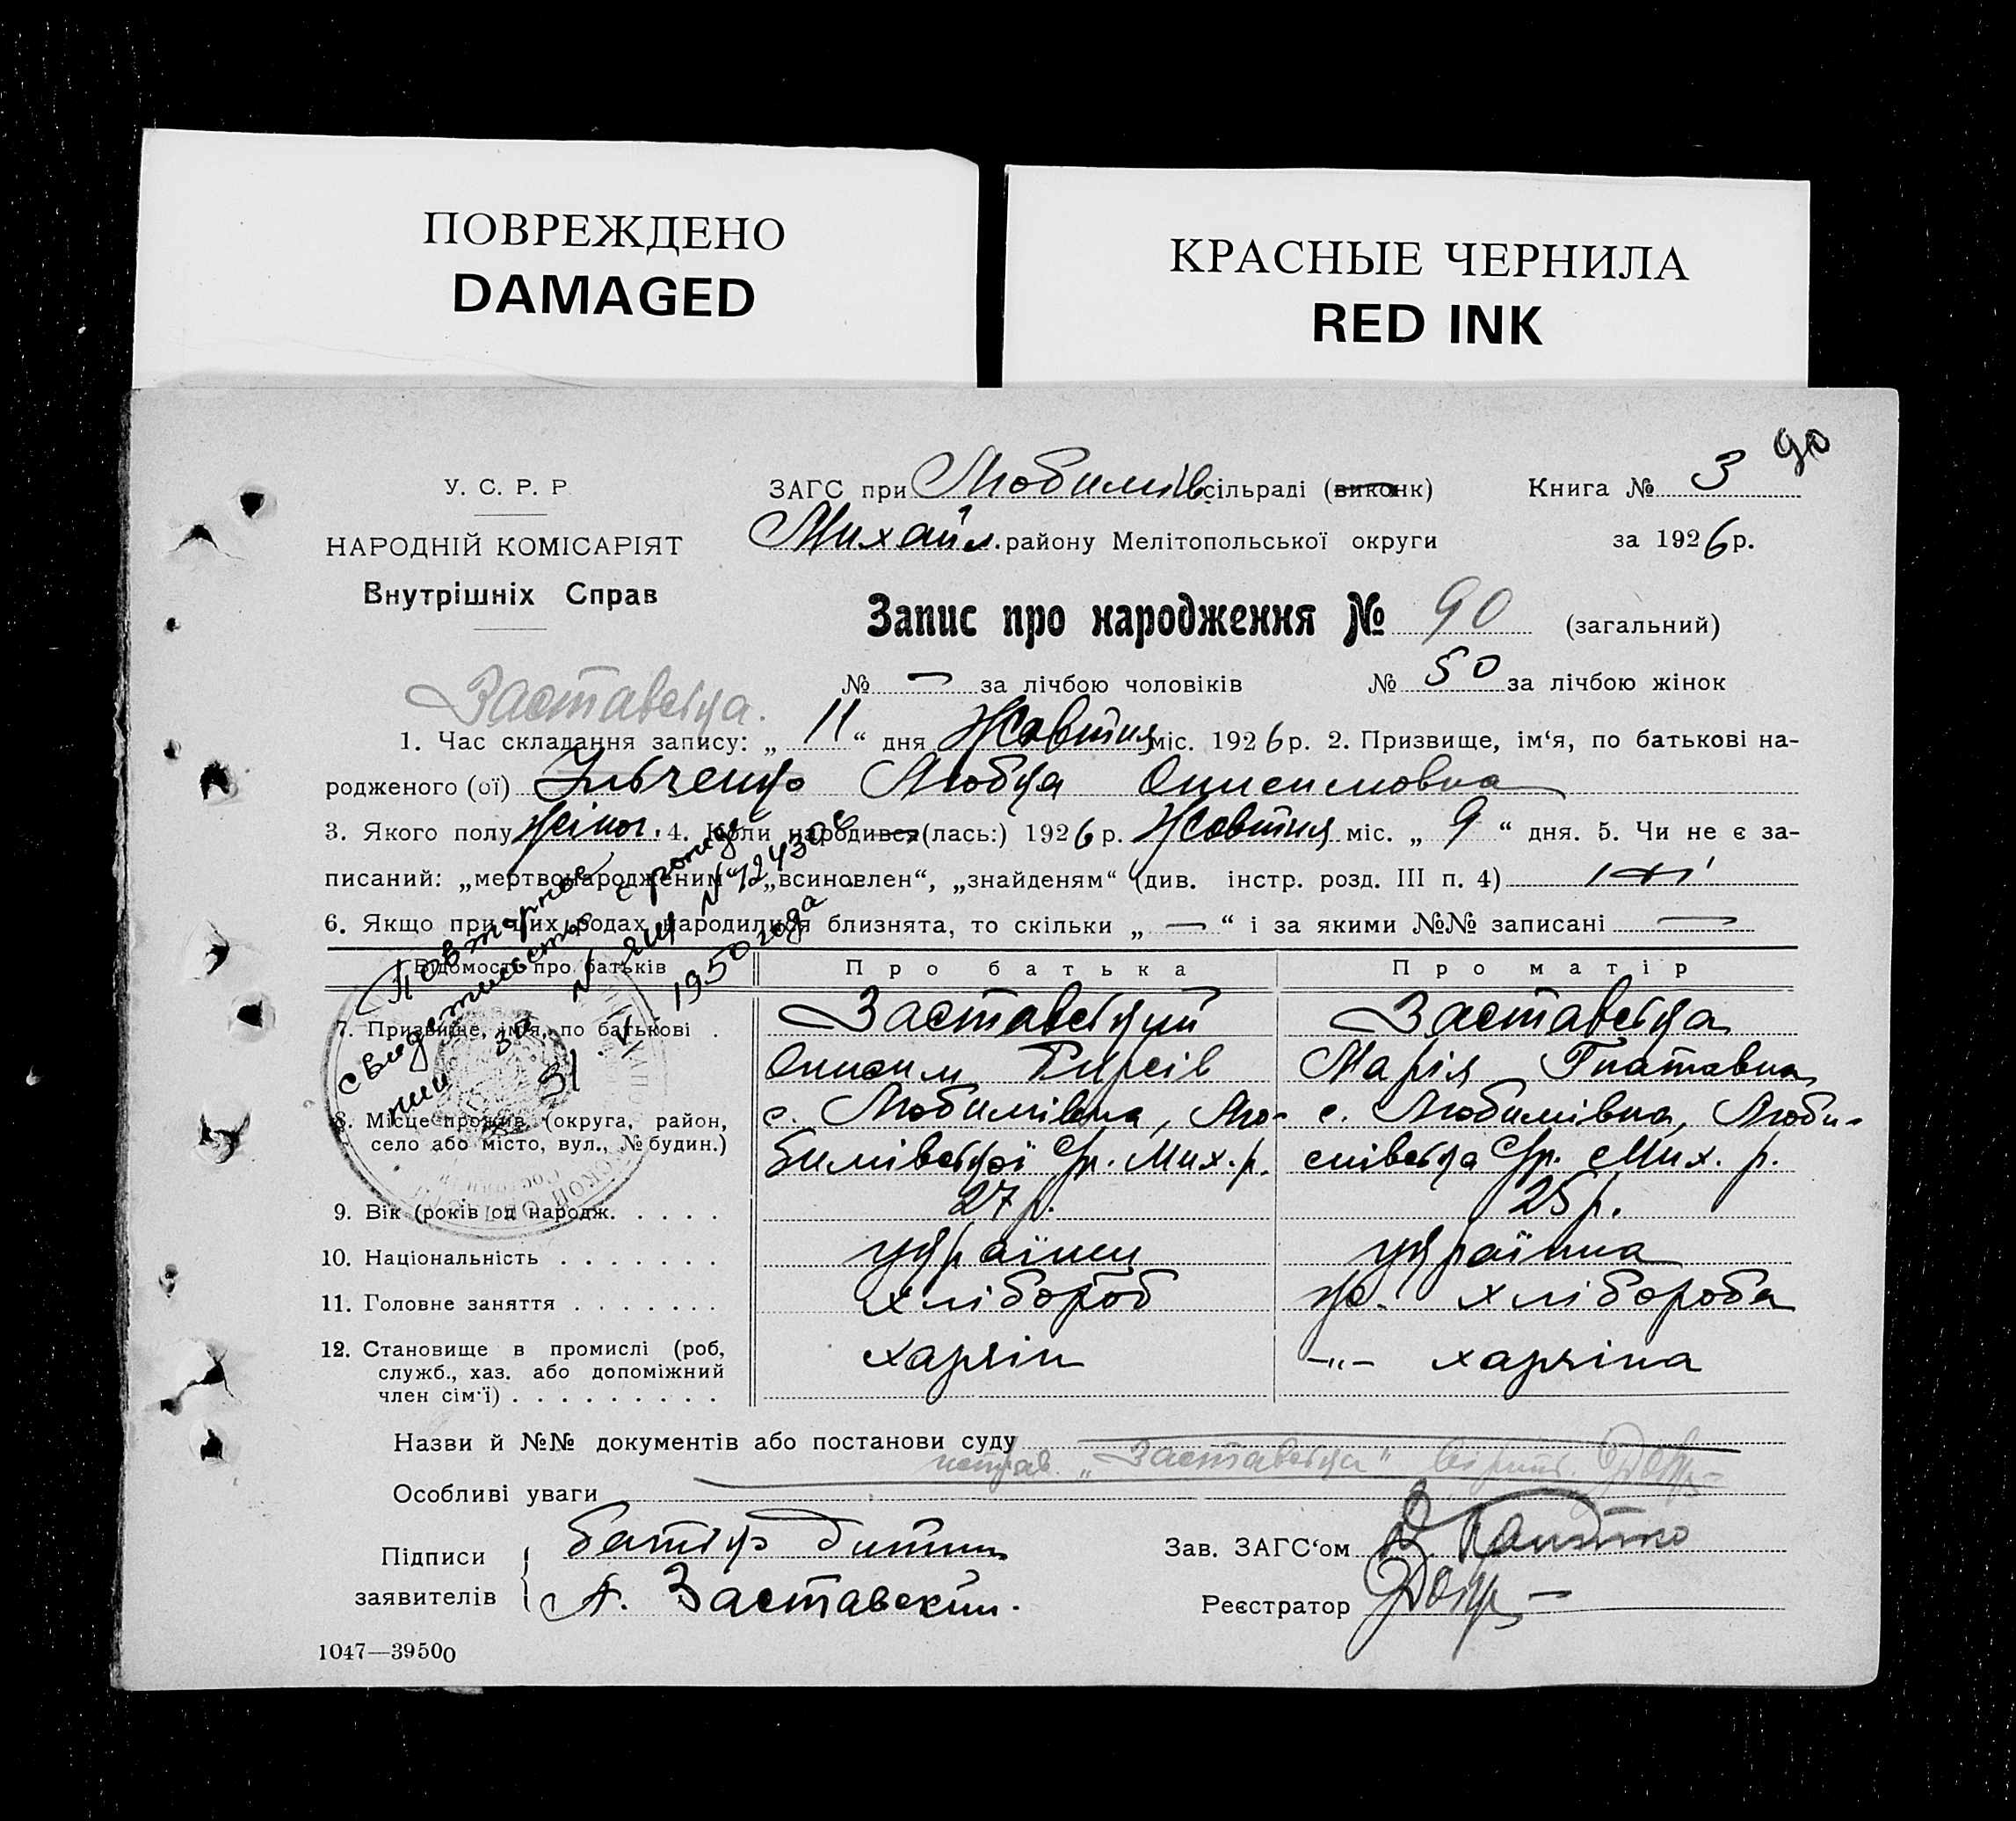 ПОВРЕЖДЕНО
DAMAGED
КРАСНЫЕ ЧЕРНИЛА
RED INK
90
У. С. Р. Р
НАРОДНІЙ КОМІСАРІЯТ
Внутрішніх Справ
ЗАГС при Любимів. сільраді (виконк)
Книга № 3
Михайл. району Мелітопольської округи
за 1926 р.
Запис про народження № 90 (загальний)
№ — за лічбою чоловіків № 50 за лічбою жінок
Заставська.
1. Час складання запису: „ 11 “ дня Жовтня міс. 1926 р. 2. Призвище, ім‘я, по батькові на-
родженого (ої) Ільченко Любка Онисимовна
3. Якого полу жіноч. 4. Коли народився (лась:) 1926 р. Жовтня міс. „ 9 “ дня. 5. Чи не є за-
писаний: „мертвонародженим“ „всиновлен“, „знайденям“ (див. інстр. розд. III п. 4) ні
6. Якщо при цих родах народилися близнята, то скільки „ — “ і за якими №№ записані —
Повторное
свидетельство о рожде
нии за № ЯЩ №
31. VI 1950 года
Відомості про батьків
Про батька
Про матір
7. Призвище, ім‘я, по батькові .
Заставський
Онисим
Заставська
Марія Гнатавна
8. Місце прожив. (округа, район,
село або місто, вул., № будин.)
с. Любимівка, Лю-
бимівської С/р. Мих. р.
с. Любимівка, Люби-
мівська С/р. Мих. р.
9. Вік (років од народж. . . . .
27 р.
25 р.
10. Національність . . . . . . .
українец
українка
11. Головне заняття . . . . . . .
хлібороб
жо. хлібороба
12. Становище в промислі (роб,
служб., хаз. або допоміжний
член сім‘ї) . . . . . . . . .
харчін
-„- харчіна
Назви й №№ документів або постанови суду
„Заставська“
Особливі уваги
Підписи
заявителів
батько дитини
А. Заставский.
Зав. ЗАГС‘ом
Реєстратор
1047—39500